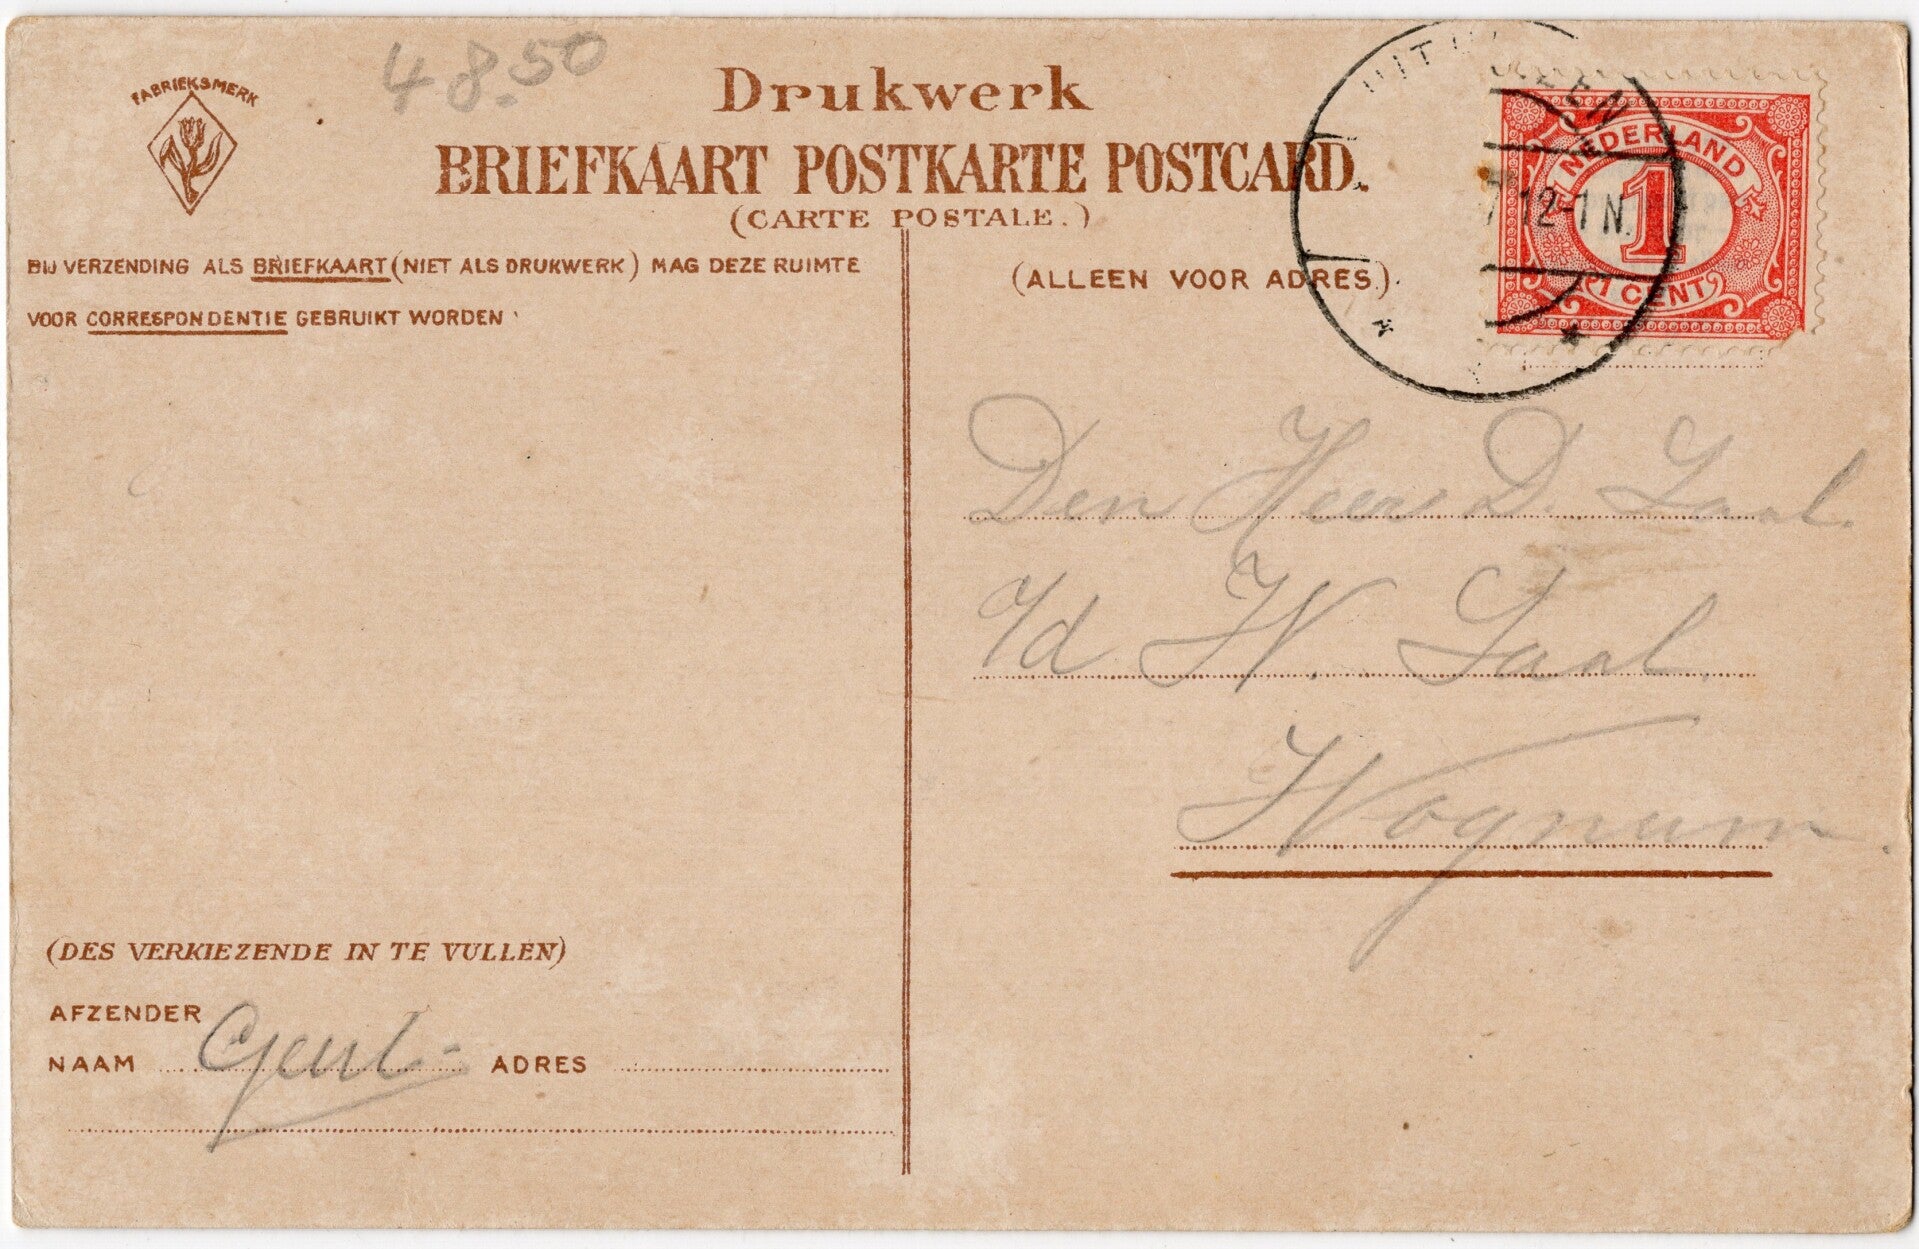 FABRIEKSMERK
48.50
Drukwerk
BRIEFKAART POSTKARTE POSTCARD.
(CARTE POSTALE.)
BIJ VERZENDING ALS BRIEFKAART (NIET ALS DRUKWERK) MAG DEZE RUIMTE
VOOR CORRESPONDENTIE GEBRUIKT WORDEN
(ALLEEN VOOR ADRES.)
12-1 N.
NEDERLAND
1
1 CENT
Den Heer D. Laal.
W. Laal.
Wognum.
(DES VERKIEZENDE IN TE VULLEN)
AFZENDER
NAAM ADRES